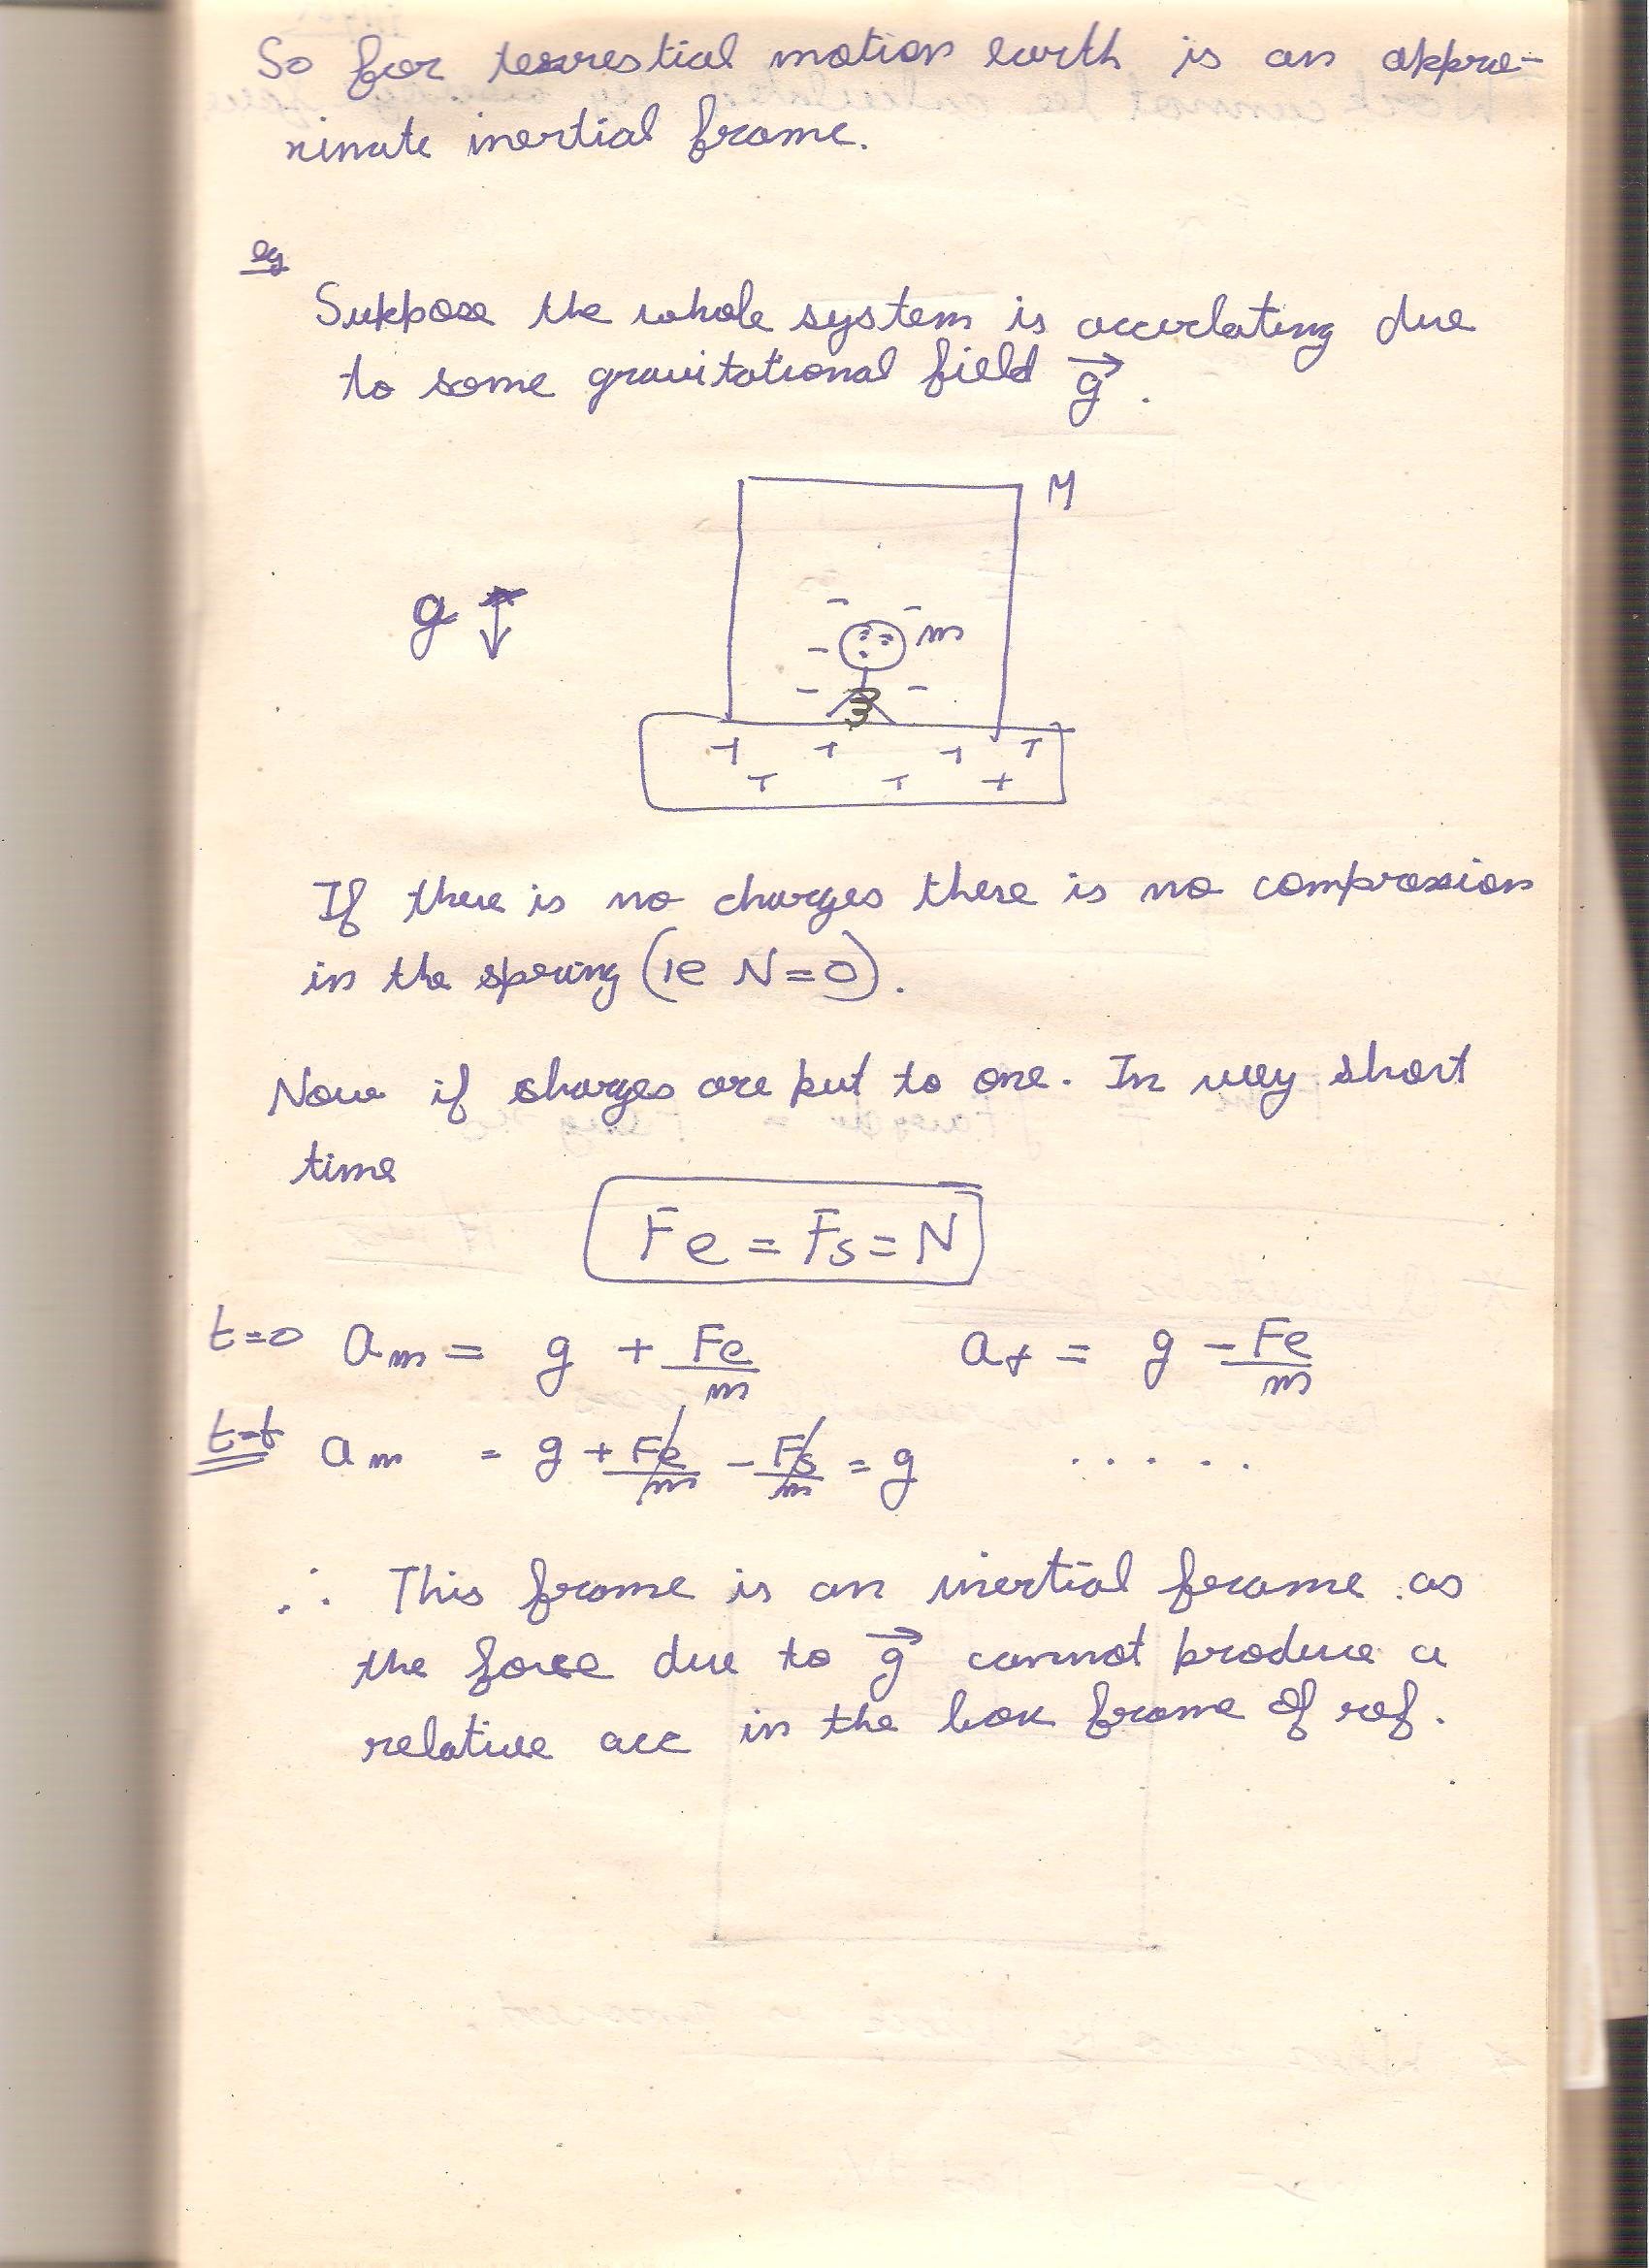 So for terrestial motion earth is an appro-
ximate inertial frame.
eg
Suppose the whole system is accerlating due
to some gravitational field g⃗ .
M
g ↓
- -
- m
- -
+ + + +
+ + +
If there is no charges there is no compression
in the spring (ie N=0).
Now if charges are put to one. In very short
time
Fe = Fs = N
t=0 am = g + Fe/m af = g - Fe/m
t=t am = g + Fe/m - Fs/m = g .....
∴ This frame is an inertial frame as
the force due to g⃗ cannot produce a
relative acc in the box frame of ref.